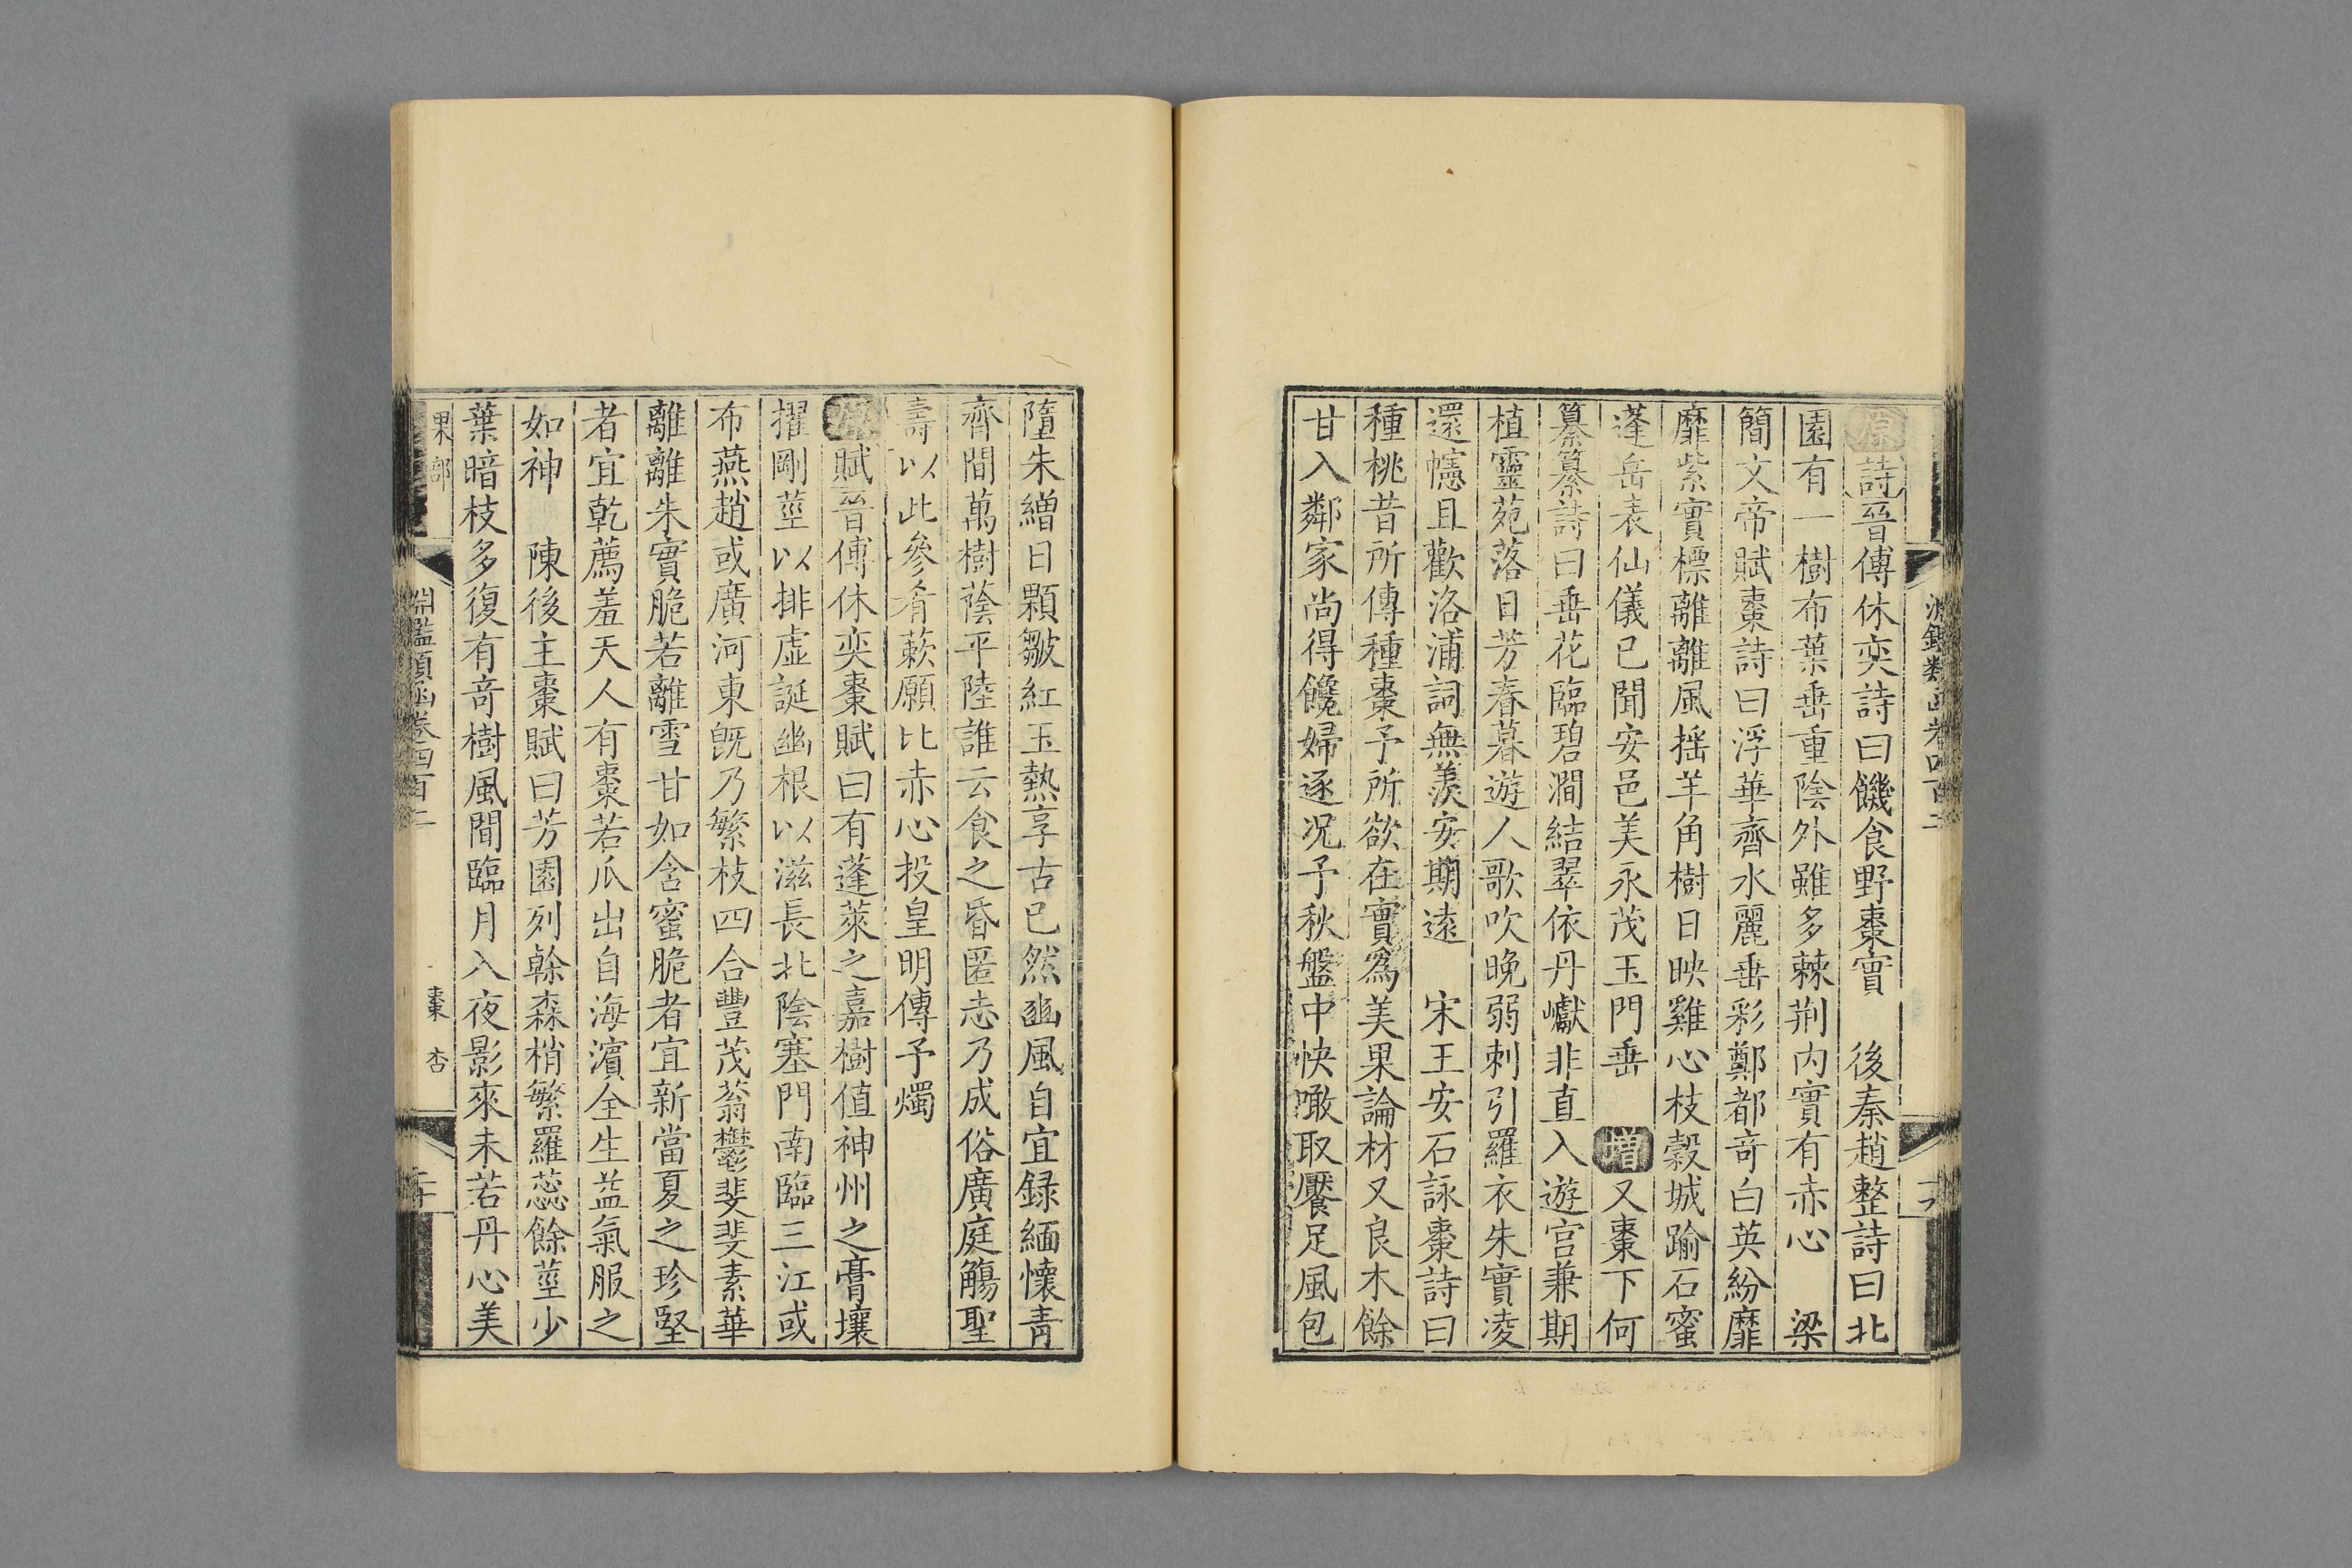 淵鑑類函卷四百二
原詩晉傅休奕詩曰饑食野棗實　後秦趙整詩曰北
園有一樹布葉垂重陰外雖多棘荆内實有赤心　梁
簡文帝賦棗詩曰浮華齊水麗垂彩鄭都竒白英紛靡
靡紫實標離離風摇羊角樹日映雞心枝榖城踰石蜜
蓬岳表仙儀已聞安邑美永茂玉門垂　增又棗下何
纂纂詩曰垂花臨碧澗結翠依丹巘非直入遊宫兼期
植靈苑落日芳春暮遊人歌吹晚弱刺引羅衣朱實凌
還幰且歡洛浦詞無羨安期遠　宋王安石詠棗詩曰
種桃昔所傳種棗予所欲在實爲美果論材又良木餘
甘入鄰家尚得饞婦逐況予秋盤中快噉取饜足風包
墮朱繒日顆皺紅玉熱享古已然豳風自宜録緬懷青
齊間萬樹蔭平陸誰云食之昏匿志乃成俗廣庭觴聖
壽以此參肴蔌願比赤心投皇明儻予燭
原賦晉傅休奕棗賦曰有蓬萊之嘉樹值神州之膏壤
擢剛莖以排虚誕幽根以滋長北陰塞門南臨三江或
布燕趙或廣河東既乃繁枝四合豐茂蓊鬱斐斐素華
離離朱實脆若離雪甘如含蜜脆者宜新當夏之珍堅
者宜乾薦羞天人有棗若瓜出自海濱全生益氣服之
如神　陳後主棗賦曰芳園列幹森梢繁羅蕊餘莖少
葉暗枝多復有竒樹風間臨月入夜影來未若丹心美
果部
淵鑑類函卷四百二
棗　杏